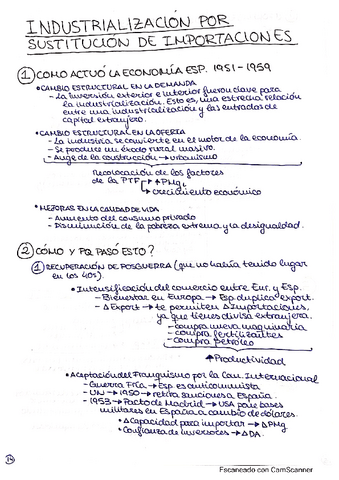 INDUSTRIALIZACIÓN POR
SUSTITUCIÓN DE IMPORTACIONES
1 COMO ACTUÓ LA ECONOMÍA ESP. 1951-1959
• CAMBIO ESTRUCTURAL EN LA DEMANDA
- La inversión exterior e interior fueron clave para
la industrialización. Esto es, una estrecha relación
entre una industrialización y las entradas de
capital extranjero.
• CAMBIO ESTRUCTURAL EN LA OFERTA
- La industria se convierte en el motor de la economía.
- Se produce un éxodo rural masivo.
- Auge de la construcción → urbanismo
Recolocación de los factores
de la PTF → ↑PMg
→ crecimiento económico
• MEJORAS EN LA CALIDAD DE VIDA
- Aumento del consumo privado
- Disminución de la pobreza extrema y la desigualdad.
2 CÓMO Y PQ PASÓ ESTO?
1 RECUPERACIÓN DE POSGUERRA (que no había tenido lugar
en los 40s).
• Intensificación del comercio entre Eur. y Esp.
- Bienestar en Europa → Esp duplica export.
- Δ Export → te permiten Δ Importaciones,
ya que tienes divisa extranjera.
- compra nueva maquinaria
- compra fertilizantes
- compra petróleo
↑ Productividad
• Aceptación del Franquismo por la Com. Internacional
- Guerra Fría → Esp es anticomunista
- UN → 1950 → retira sanciones a España.
- 1953 → Pacto de Madrid → USA pone bases
militares en España a cambio de dólares.
• Δ Capacidad para importar → ΔPMg
• Confianza de inversores → ΔDA.
Escaneado con CamScanner